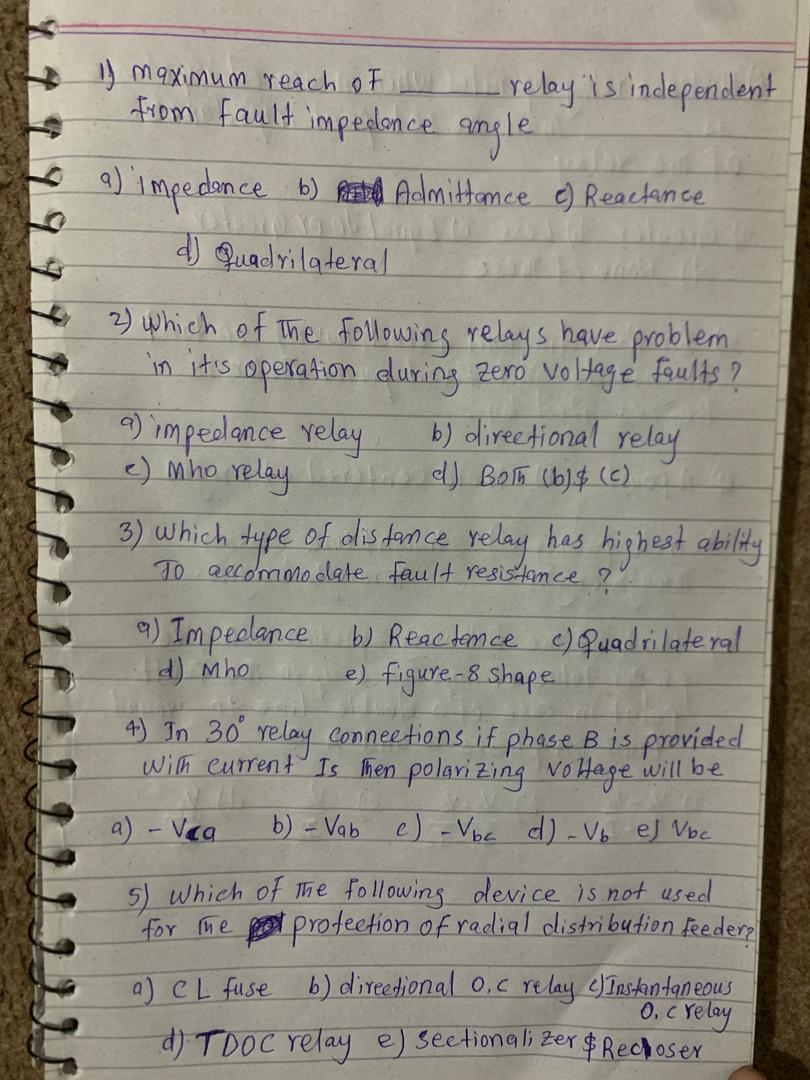 1) maximum reach of ______ relay is independent
from fault impedance angle
a) impedance b) Admittance c) Reactance
d) Quadrilateral
2) which of the following relays have problem
in it's operation during zero voltage faults?
a) impedance relay b) directional relay
c) Mho relay d) Both (b) & (c)
3) which type of distance relay has highest ability
To accommodate fault resistance?
a) Impedance b) Reactance c) Quadrilateral
d) Mho e) figure-8 shape
4) In 30° relay connections if phase B is provided
with current Is then polarizing voltage will be
a) - Vca b) - Vab c) - Vbc d) - Vb e) Vbc
5) which of the following device is not used
for the protection of radial distribution feeder?
a) CL fuse b) directional O.C relay c) Instantaneous
O.C relay
d) TDOC relay e) sectionalizer & Recloser